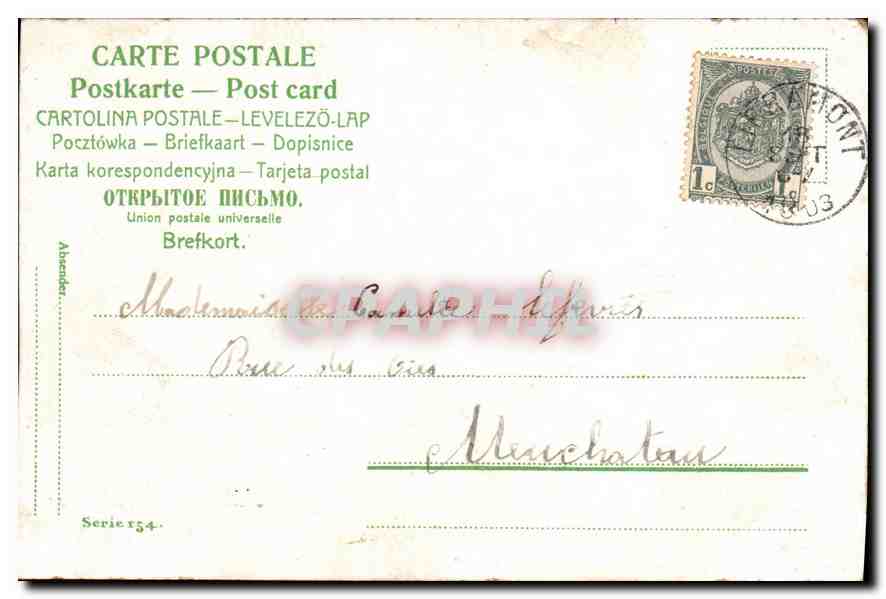 CARTE POSTALE
Postkarte — Post card
CARTOLINA POSTALE — LEVELEZŐ-LAP
Pocztówka — Briefkaart — Dopisnice
Karta korespondencyjna — Tarjeta postal
ОТКРЫТОЕ ПИСЬМО.
Union postale universelle
Brefkort.
Absender.
POSTES
BELGIQUE
1c 1
1903
CPAPHIL
Mademoiselle Camille Lefevre
Rue des
Neuchateau
Serie 154.